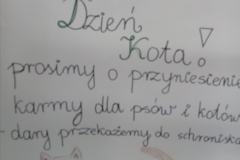 Dzień
Kota!
prosimy o przyniesienie
karmy dla psów i kotów
- dary przekażemy do schroniska